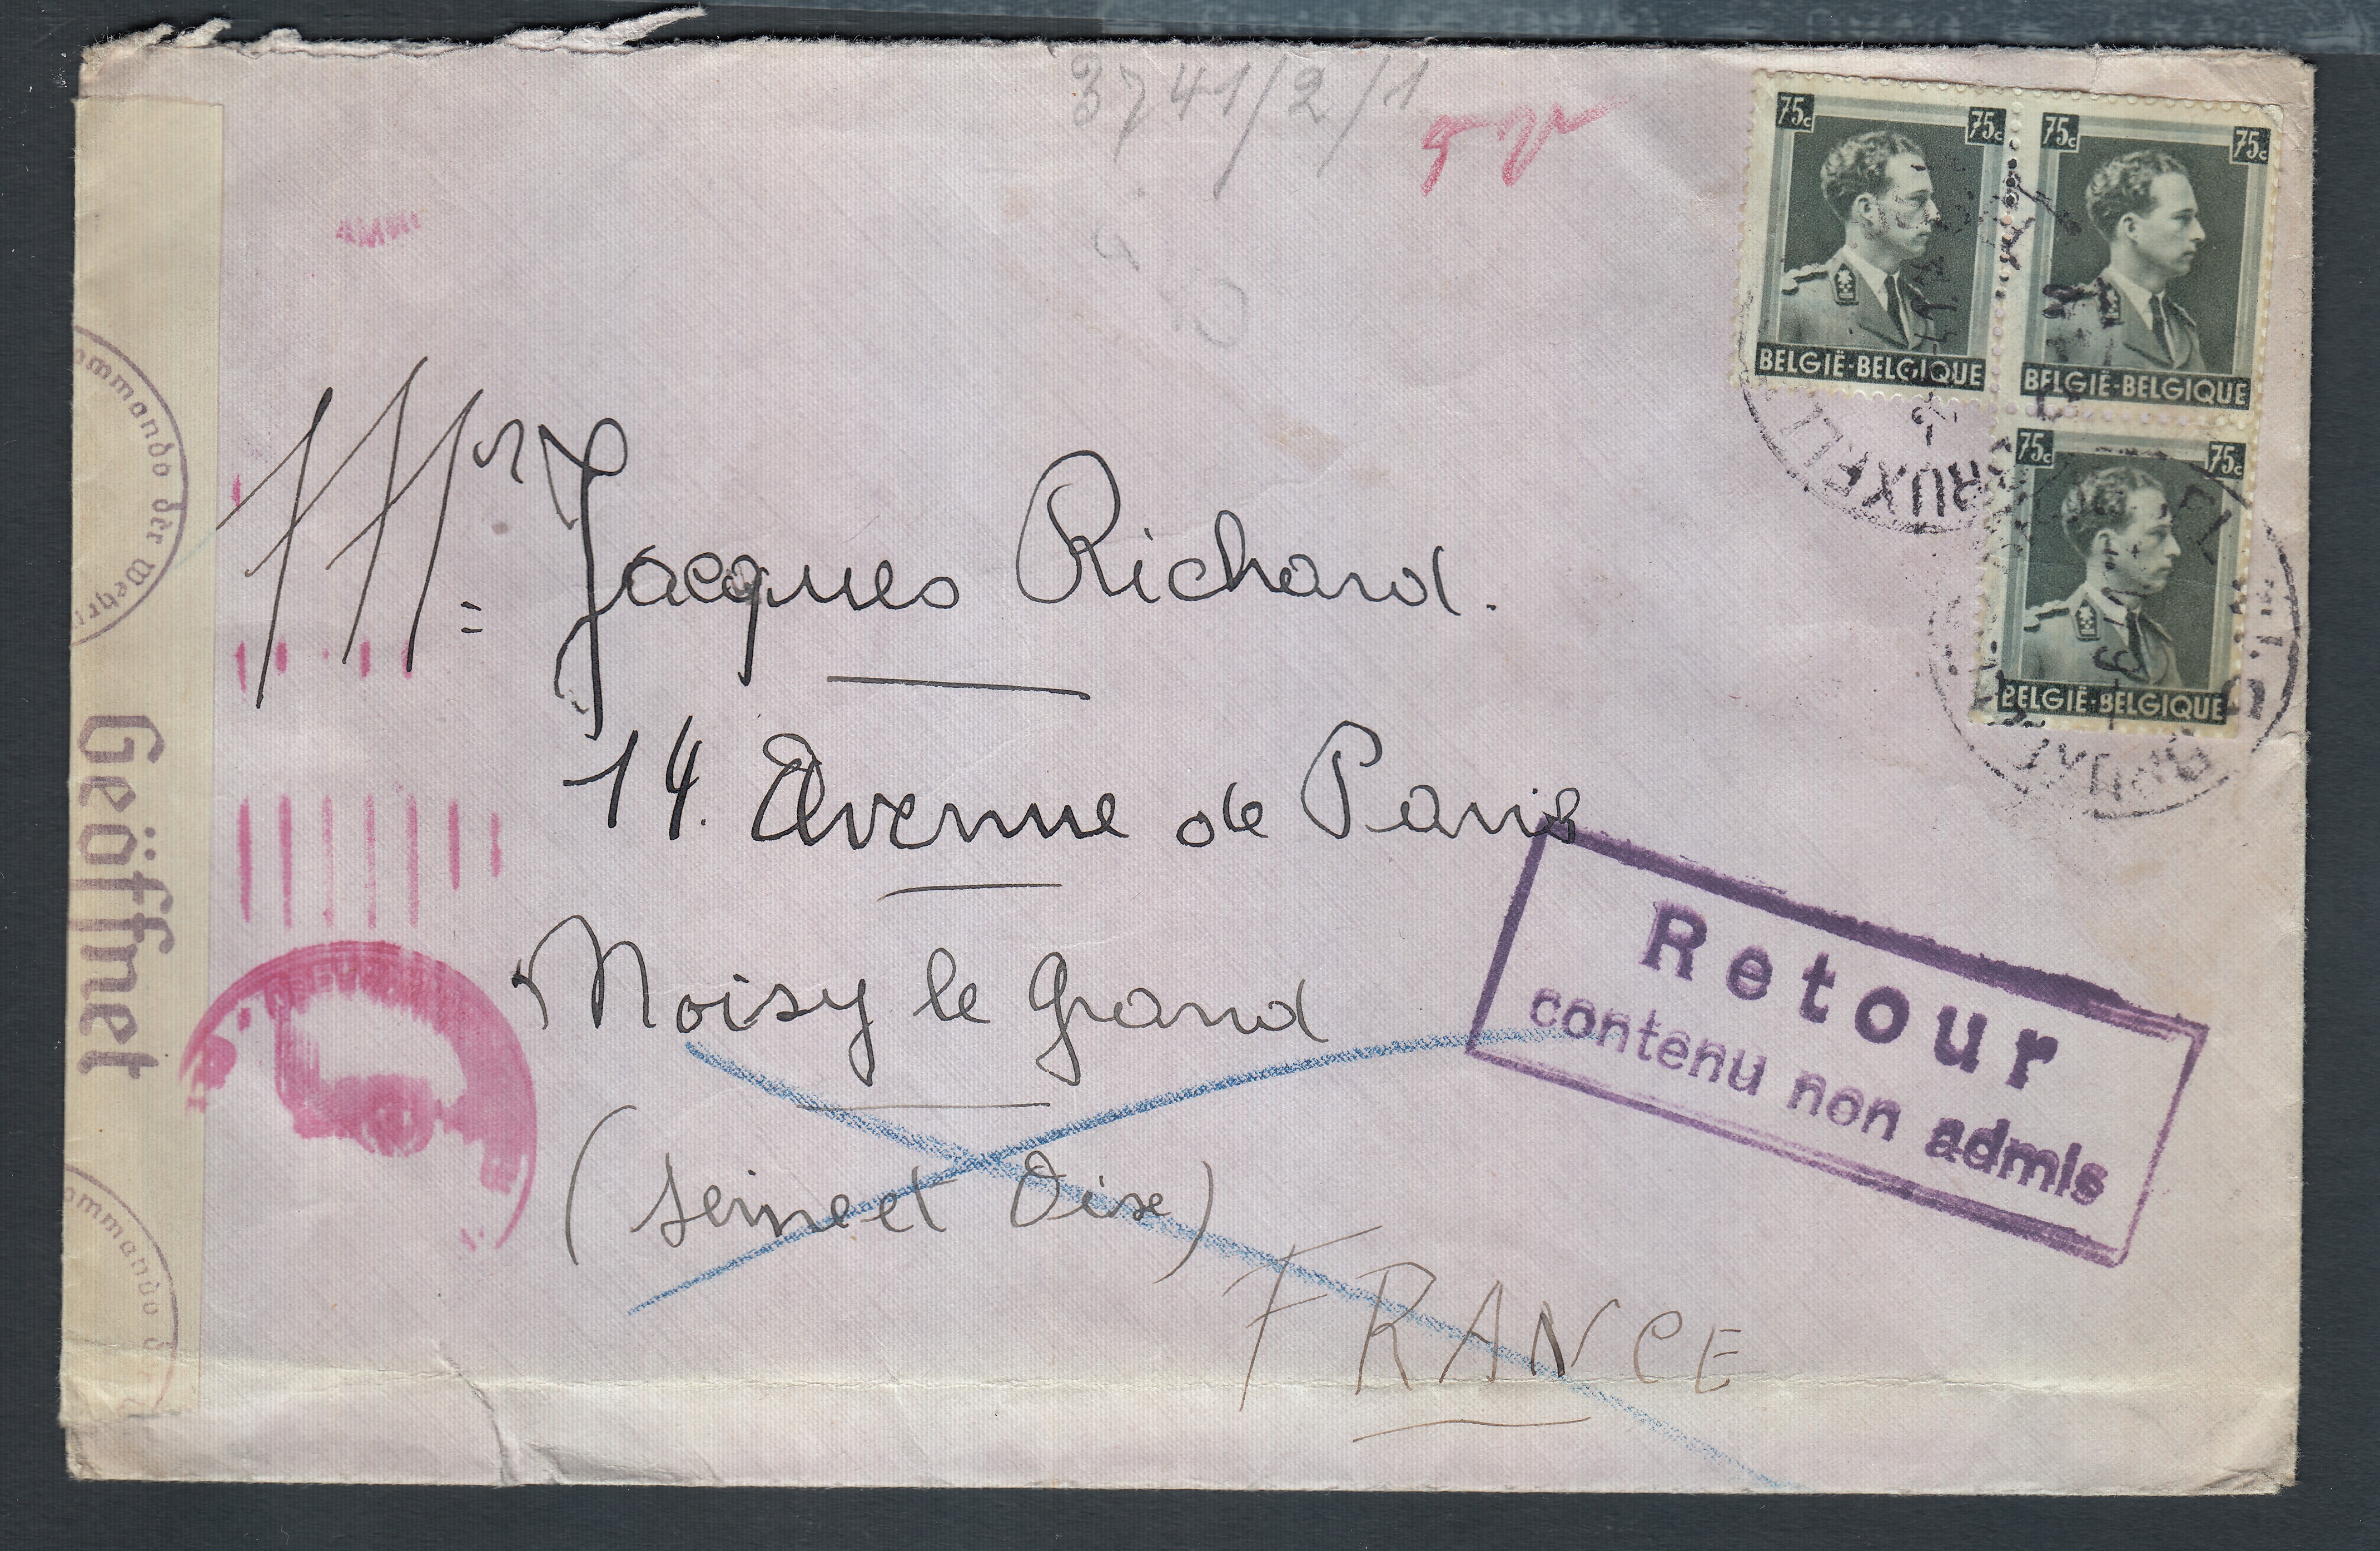 3741/2/1
75c 75c
BELGIË-BELGIQUE
75c 75c
BELGIË-BELGIQUE
75c 75c
BELGIË-BELGIQUE
Mr Jacques Richard.
14. Avenue de Paris
Noisy le Grand
(Seine et Oise)
FRANCE
Retour
contenu non admis
ommando der Wehr
Geöffnet
ommando d